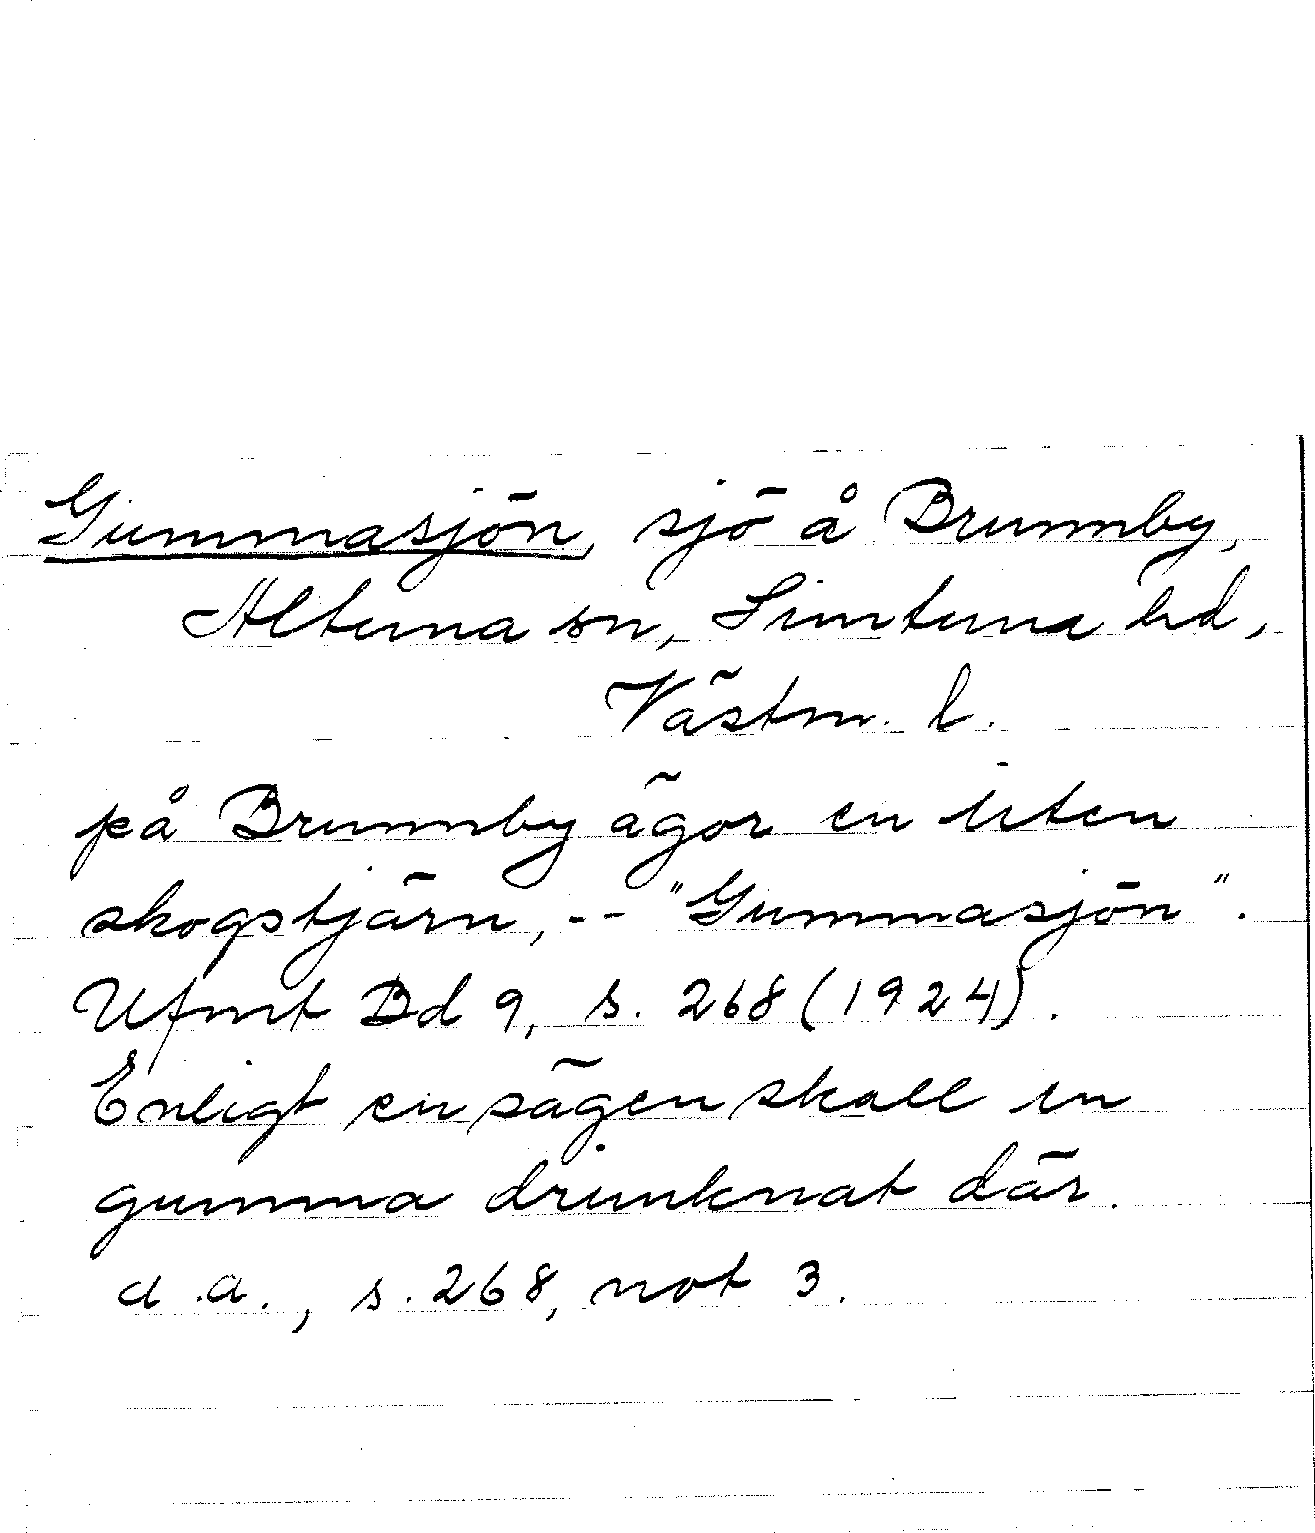 Gummasjön, sjö å Brunnby,
Altuna sn, Simtuna hd,
Västm. l.
på Brunnby ägor en liten
skogstjärn, -- "Gummasjön".
Ufmt Bd 9, s. 268 (1924).
Enligt en sägen skall en
gumma drunknat där.
a.a., s. 268, not 3.